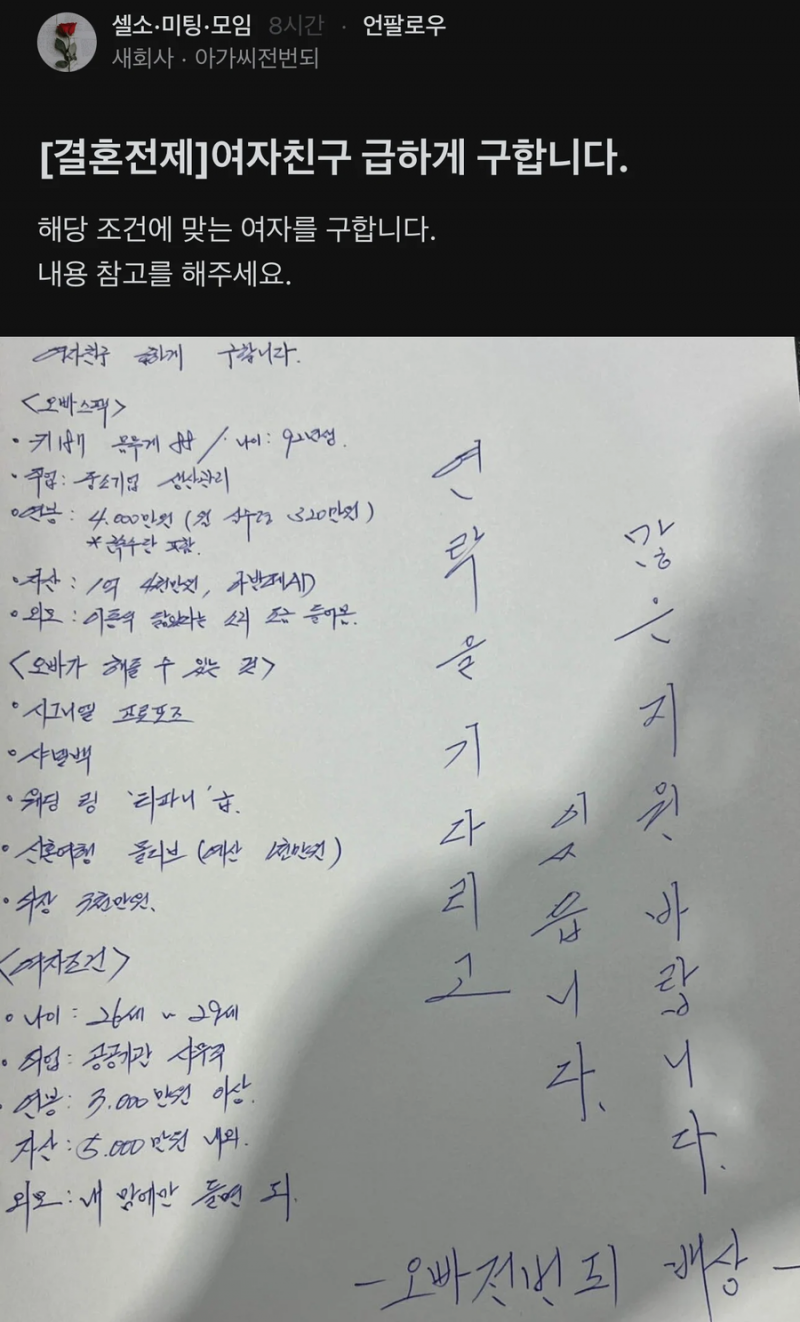 셀소·미팅·모임 8시간 · 언팔로우
새회사 · 아가씨전번되
[결혼전제]여자친구 급하게 구합니다.
해당 조건에 맞는 여자를 구합니다.
내용 참고를 해주세요.
여자친구 급하게 구합니다.
<오빠스펙>
• 키 몸무게 / 나이: 92년생.
• 직업: 중소기업 생산관리
• 연봉: 4.000만원 (월 실수령 320만원)
* 포함.
• 자산: 1억 4천만원, 아반떼AD
• 외모: 이종석 닮았다는 소리 조금 들어봄.
<오빠가 해줄 수 있는 것>
• 시그니엘 프로포즈
• 샤넬백
• 웨딩 링 '티파니'급.
• 신혼여행 몰디브 (예산 천만원)
• 천만원.
<여자조건>
• 나이: 26세 ~ 29세
• 직업: 공공기관 사무직
• 연봉: 3.000만원 이상.
자산: 5.000만원 내외.
외모: 내 맘에만 들면 되.
연락을 기다리고
있읍니다.
많은 지원 바랍니다.
- 오빠전번되 배상 -